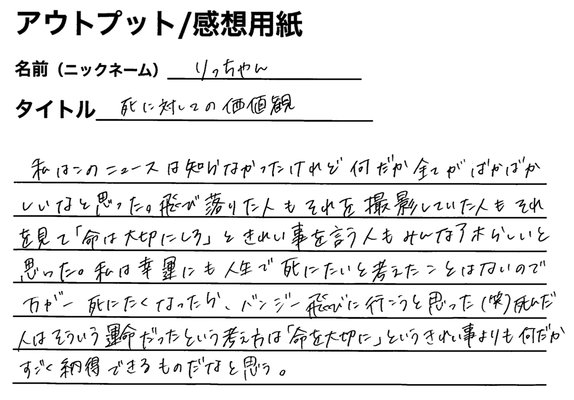 アウトプット/感想用紙
名前（ニックネーム） りっちゃん
タイトル 死に対しての価値観
私はこのニュースは知らなかったけれど何だか全てがばかばか
しいなと思った。飛び落りた人もそれを撮影していた人もそれ
を見て「命は大切にしろ」ときれい事を言う人もみんなアホらしいと
思った。私は幸運にも人生で死にたいと考えたことはないので
万が一死にたくなったら、バンジー飛びに行こうと思った(笑)死んだ
人はそういう運命だったという考え方は「命を大切に」というきれい事よりも何だか
すごく納得できるものだなと思う。